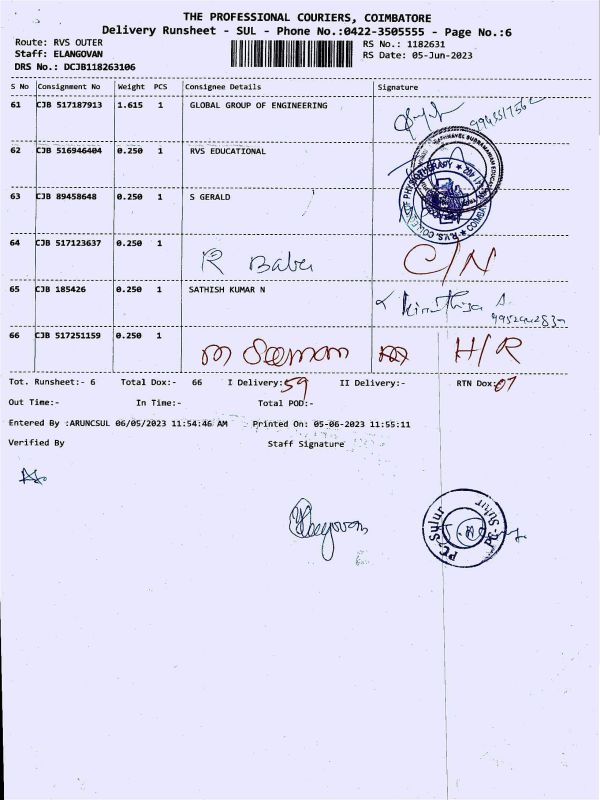 THE PROFESSIONAL COURIERS, COIMBATORE
Delivery Runsheet - SUL - Phone No.:0422-3505555 - Page No.:6
Route: RVS OUTER RS No.: 1182631
Staff: ELANGOVAN RS Date: 05-Jun-2023
DRS No.: DCJB118263106
S No Consignment No Weight PCS Consignee Details Signature
61 CJB 517187913 1.615 1 GLOBAL GROUP OF ENGINEERING
62 CJB 516946404 0.250 1 RVS EDUCATIONAL
63 CJB 89458648 0.250 1 S GERALD
64 CJB 517123637 0.250 1 R Babu C/N
65 CJB 185426 0.250 1 SATHISH KUMAR N
66 CJB 517251159 0.250 1 M Seeman H/R
Tot. Runsheet:- 6 Total Dox:- 66 I Delivery:59 II Delivery:- RTN Dox:07
Out Time:- In Time:- Total POD:-
Entered By :ARUNCSUL 06/05/2023 11:54:46 AM Printed On: 05-06-2023 11:55:11
Verified By Staff Signature
PC-Sulur PC-Sulur